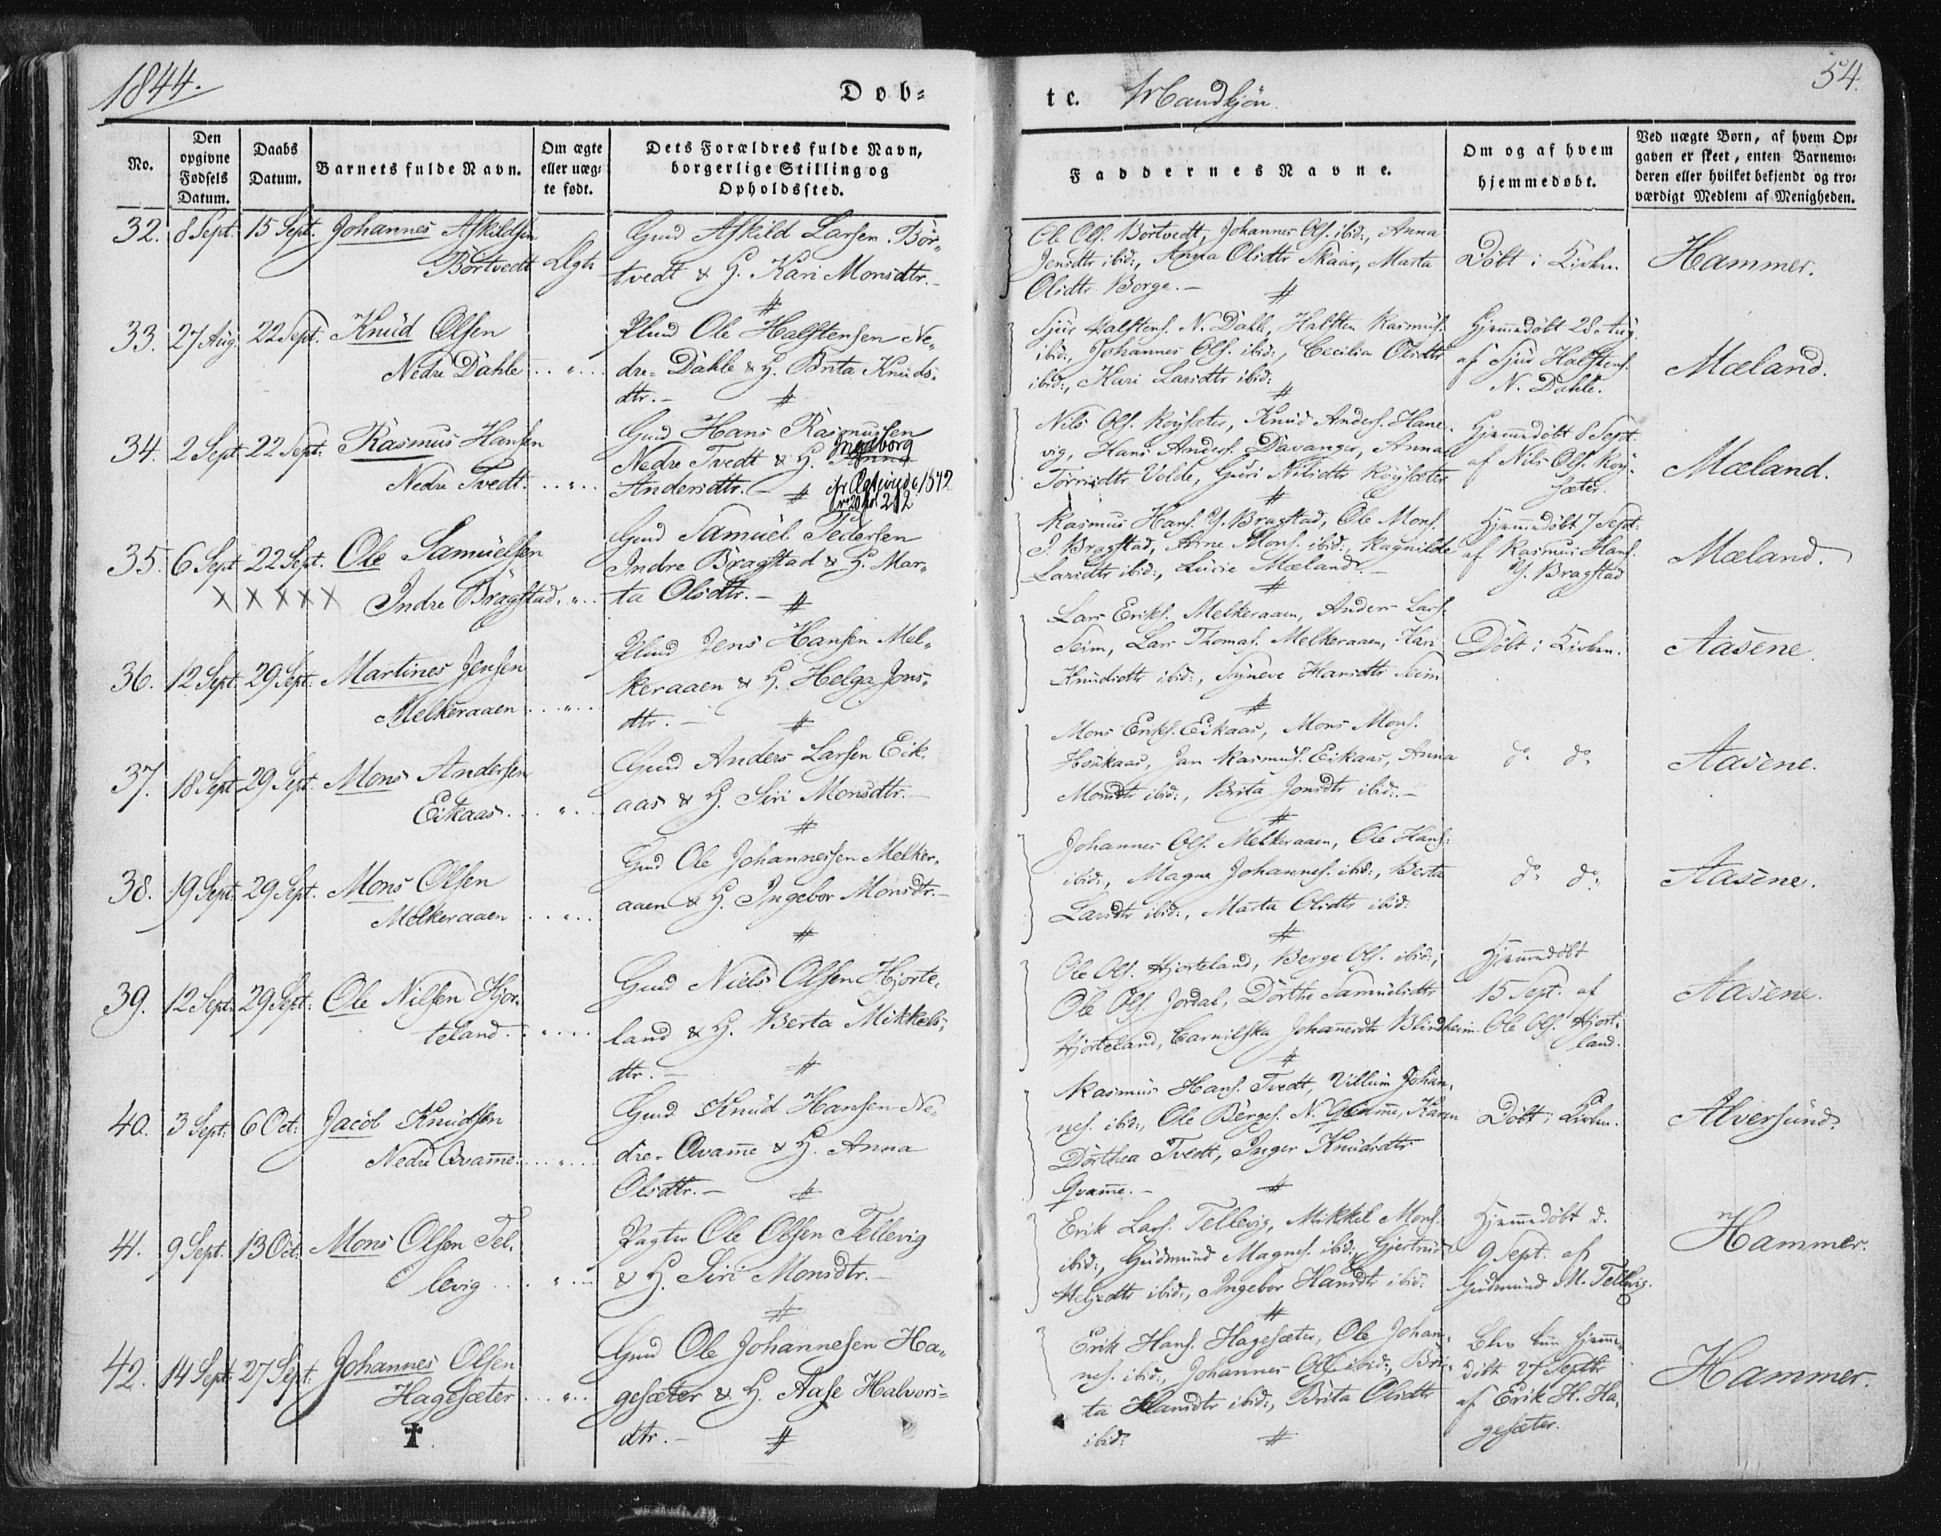 1844.
Dob-
te. Mandkjön.
54.
No.
Den opgivne Fødsels Datum.
Daabs Datum.
Barnets fulde Navn.
Om ægte eller uæg- te født.
Dets Forældres fulde Navn, borgerlige Stilling og Opholdssted.
Faddernes Navne.
Om og af hvem hjemmedøbt.
Ved uægte Børn, af hvem Op- gaven er skeet, enten Barnemo- deren eller hvilket bekjendt og tro- værdigt Medlem af Menigheden.
32. 8 Sept. 15 Sept. Johannes Askildsen
Börtvedt Ægte
Gmd Askild Larsen Bör-
tvedt & H. Kari Monsdtr.-
Ole Ols. Börtvedt, Johannes Ols. ibid:, Anna
Jensdtr ibid:, Anna Olsdtr Skaar, Marta
Olsdtr Borge.-
Döbt i Kirken.
Hammer.
33. 27 Aug. 22 Sept. Knud Olsen
Nedre Dahle
Ole Halstensen Ne-
dre Dahle & H. Brita Knuds-
dtr.-
Sjur Halstens. N. Dahle, Halsten Rasmus.
ibid:, Johannes Ols. ibid:, Cecilia Olsdtr
ibid:, Kari Larsdtr ibid:
Hjemmedöbt 28. Aug.
af Sjur Halstens.
N. Dahle.
Mæland.
34. 2 Sept. 22 Sept. Rasmus Hansen
Nedre Tvedt.
Gmd Hans Rasmussen
Nedre Tvedt & H. Anna Ingeborg
Andersdtr.-
1842
Nils Ols. Röysæter, Knud Anders. Hane-
vig, Hans Anders. Davanger, Anna
Torrisdtr Volde, Guri Nilsdtr Röysæter
Hjemmedöbt 8 Sept.
af Nils Ols. Röy-
sæter.
Mæland.
35. 6 Sept. 22 Sept. Ole Samuelsen
X X X X X Indre Bragstad.
Gmd Samuel Pedersen
Indre Bragstad & H. Mar-
ta Olsdtr.-
Rasmus Hans. Y. Bragstad, Ole Mons.
I. Bragstad, Arne Mons. ibid: Ragnilde
Larsdtr ibid:, Lucie Mæland.-
Hjemmedöbt 7 Sept.
af Rasmus Hans.
Y. Bragstad
Mæland.
36. 12 Sept. 29 Sept. Martines Jensen
Melkeraaen
Jens Hansen Mel-
keraaen & H. Helga Jons-
dtr.-
Lars Eriks. Melkeraaen, Anders Lars.
Seim, Lars Thomas. Melkeraaen, Kari
Knudsdtr ibid:, Syneve Hansdtr Seim
Döbt i Kirken.
Aasene.
37. 18 Sept. 29 Sept. Mons Andersen
Eikaas.
Gmd Anders Larsen Eik-
aas & H. Siri Monsdtr.-
Mons Eriks. Eikaas, Mons Mons.
Haukaas, Jan Rasmus. Eikaas, Anna
Monsdtr ibid:, Brita Jonsdtr ibid:.-
do do
Aasene.
38. 19 Sept. 29 Sept. Mons Olsen
Melkeraaen
Gmd Ole Johannessen Melker-
aaen & H. Ingebor Monsdtr.-
Johannes Ols. Melkeraaen, Ole Hans.
ibid:, Magne Johannes. ibid:, Berta
Larsdtr ibid:, Marta Olsdtr ibid:
do do
Aasene.
39. 12 Sept. 29 Sept. Ole Nilsen Hjor-
teland.
Gmd Niels Olsen Hjorte-
land & H. Berta Mikkels-
dtr.-
Ole Ols. Hjorteland, Berge Ols. ibid:,
Ole Ols. Jordal, Dorthe Samuelsdtr
Hjorteland, Johannesdtr Blindheim
Hjemmedöbt
15 Sept. af
Ole Ols. Hjort-
land.
Aasene.
40. 3 Sept. 6 Oct: Jacob Knudsen
Nedre Qvamme.
Gmd Knud Hansen Ne-
dre Qvamme & H. Anna
Olsdtr.-
Rasmus Hans. Tvedt, Villum Johan-
nes. ibid:, Ole Börges. N. Qvamme, Karen
Dorthea Tvedt, Inger Knudsdtr
Qvamme.-
Döbt i Kirken.
Alversund
41. 9 Sept. 13 Oct: Mons Olsen Tel-
levig
Pagter Ole Olsen Tellevig
& H. Siri Monsdtr.-
Erik Lars. Tellevig, Mikkel Mons.
ibid:, Gudmund Magnes. ibid:, Gjertrud
ibid:, Ingebor Hansdtr ibid:
Hjemmedöbt d.
9 Sept. af
Gudmund M. Tellevig.
Hammer.
42. 14 Sept. 27 Sept. Johannes Olsen
Hagesæter
✝
Gmd Ole Johannesen Ha-
gesæter & H. Aase Halvors-
dtr.-
Erik Hans. Hagesæter, Ole Johan-
nes. ibid:, Johannes Ols. ibid:, Bri-
ta Hansdtr ibid:, Brita Olsdtr
ibid:
Blev kun hjemme-
döbt 27 Septbr
af Erik H. Ha-
gesæter.
Hammer.